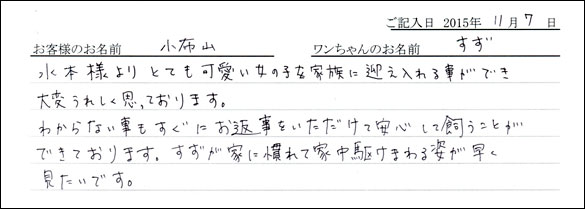 ご記入日 2015年 11月 7日
お客様のお名前 小布山 ワンちゃんのお名前 すず
水本様より とても可愛い女の子を家族に迎え入れる事ができ
大変うれしく思っております。
わからない事もすぐにお返事をいただけて安心して飼うことが
できております。すずが家に慣れて家中駆けまわる姿が早く
見たいです。